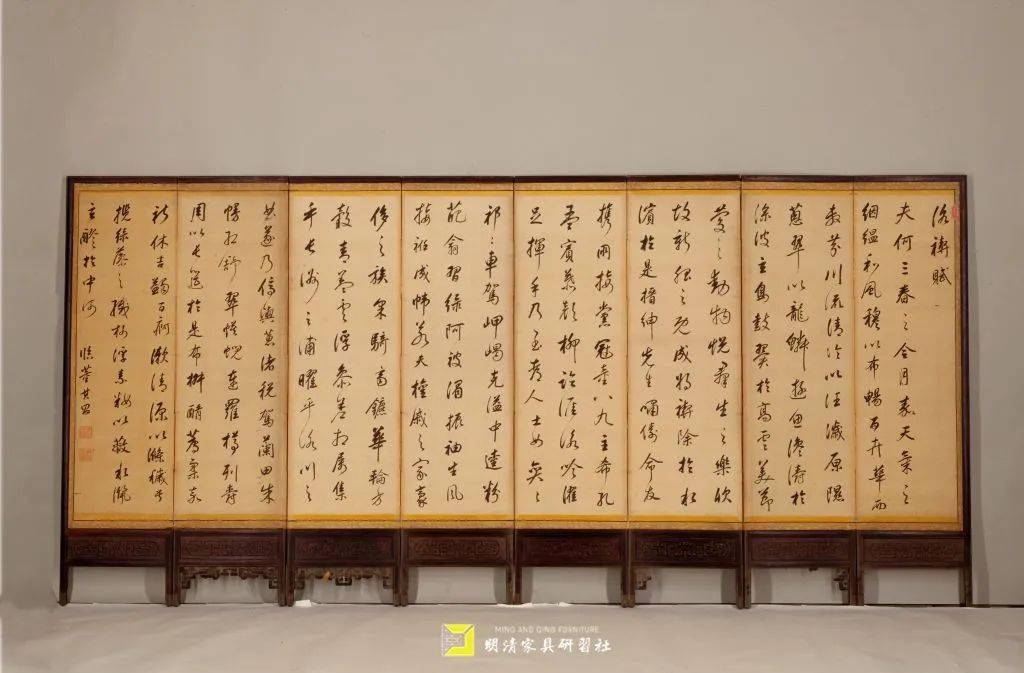 洛禊賦
夫何三春之令月嘉天氣之
絪緼和風穆以布暢百卉華而
敷芬川流清泠以汪濊原隰
蔥翠以龍鱗游魚瀺濤於
淥波玄鳥鼓翼於高雲美節
慶之動物悅群生之樂欣
故新服之既成將禊除於水
濱於是搢紳先生嘯儔命友
攜朋接黨冠童八九主希孔
墨賓慕顏柳臨涯詠吟濯
足揮手乃至都人士女奕〻
祁〻車駕岬嵑充溢中逵粉
葩翕習緣阿被湄振袖生風
接衽成帷若夫權戚之家豪
侈之族采騎齊鑣華輪方
轂青蓋雲浮參差相屬集
乎長洲之浦曜乎洛川之
曲遂乃停輿蕙渚稅駕蘭田朱
幔虹舒翠幙蜺連羅樽列爵
周以長筵於是布椒醑薦柔嘉
祈休吉蠲百痾漱清源以滌穢兮
攬綠藻之纖柯浮素妝以蔽水灑
玄醪於中河
臨董其昌
MING AND QING FURNITURE
明清家具研習社